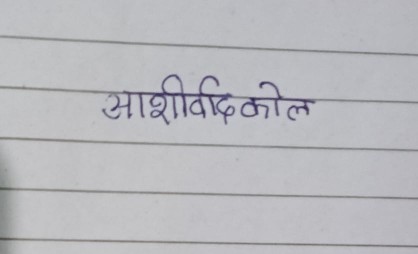 आशीर्वादकोल